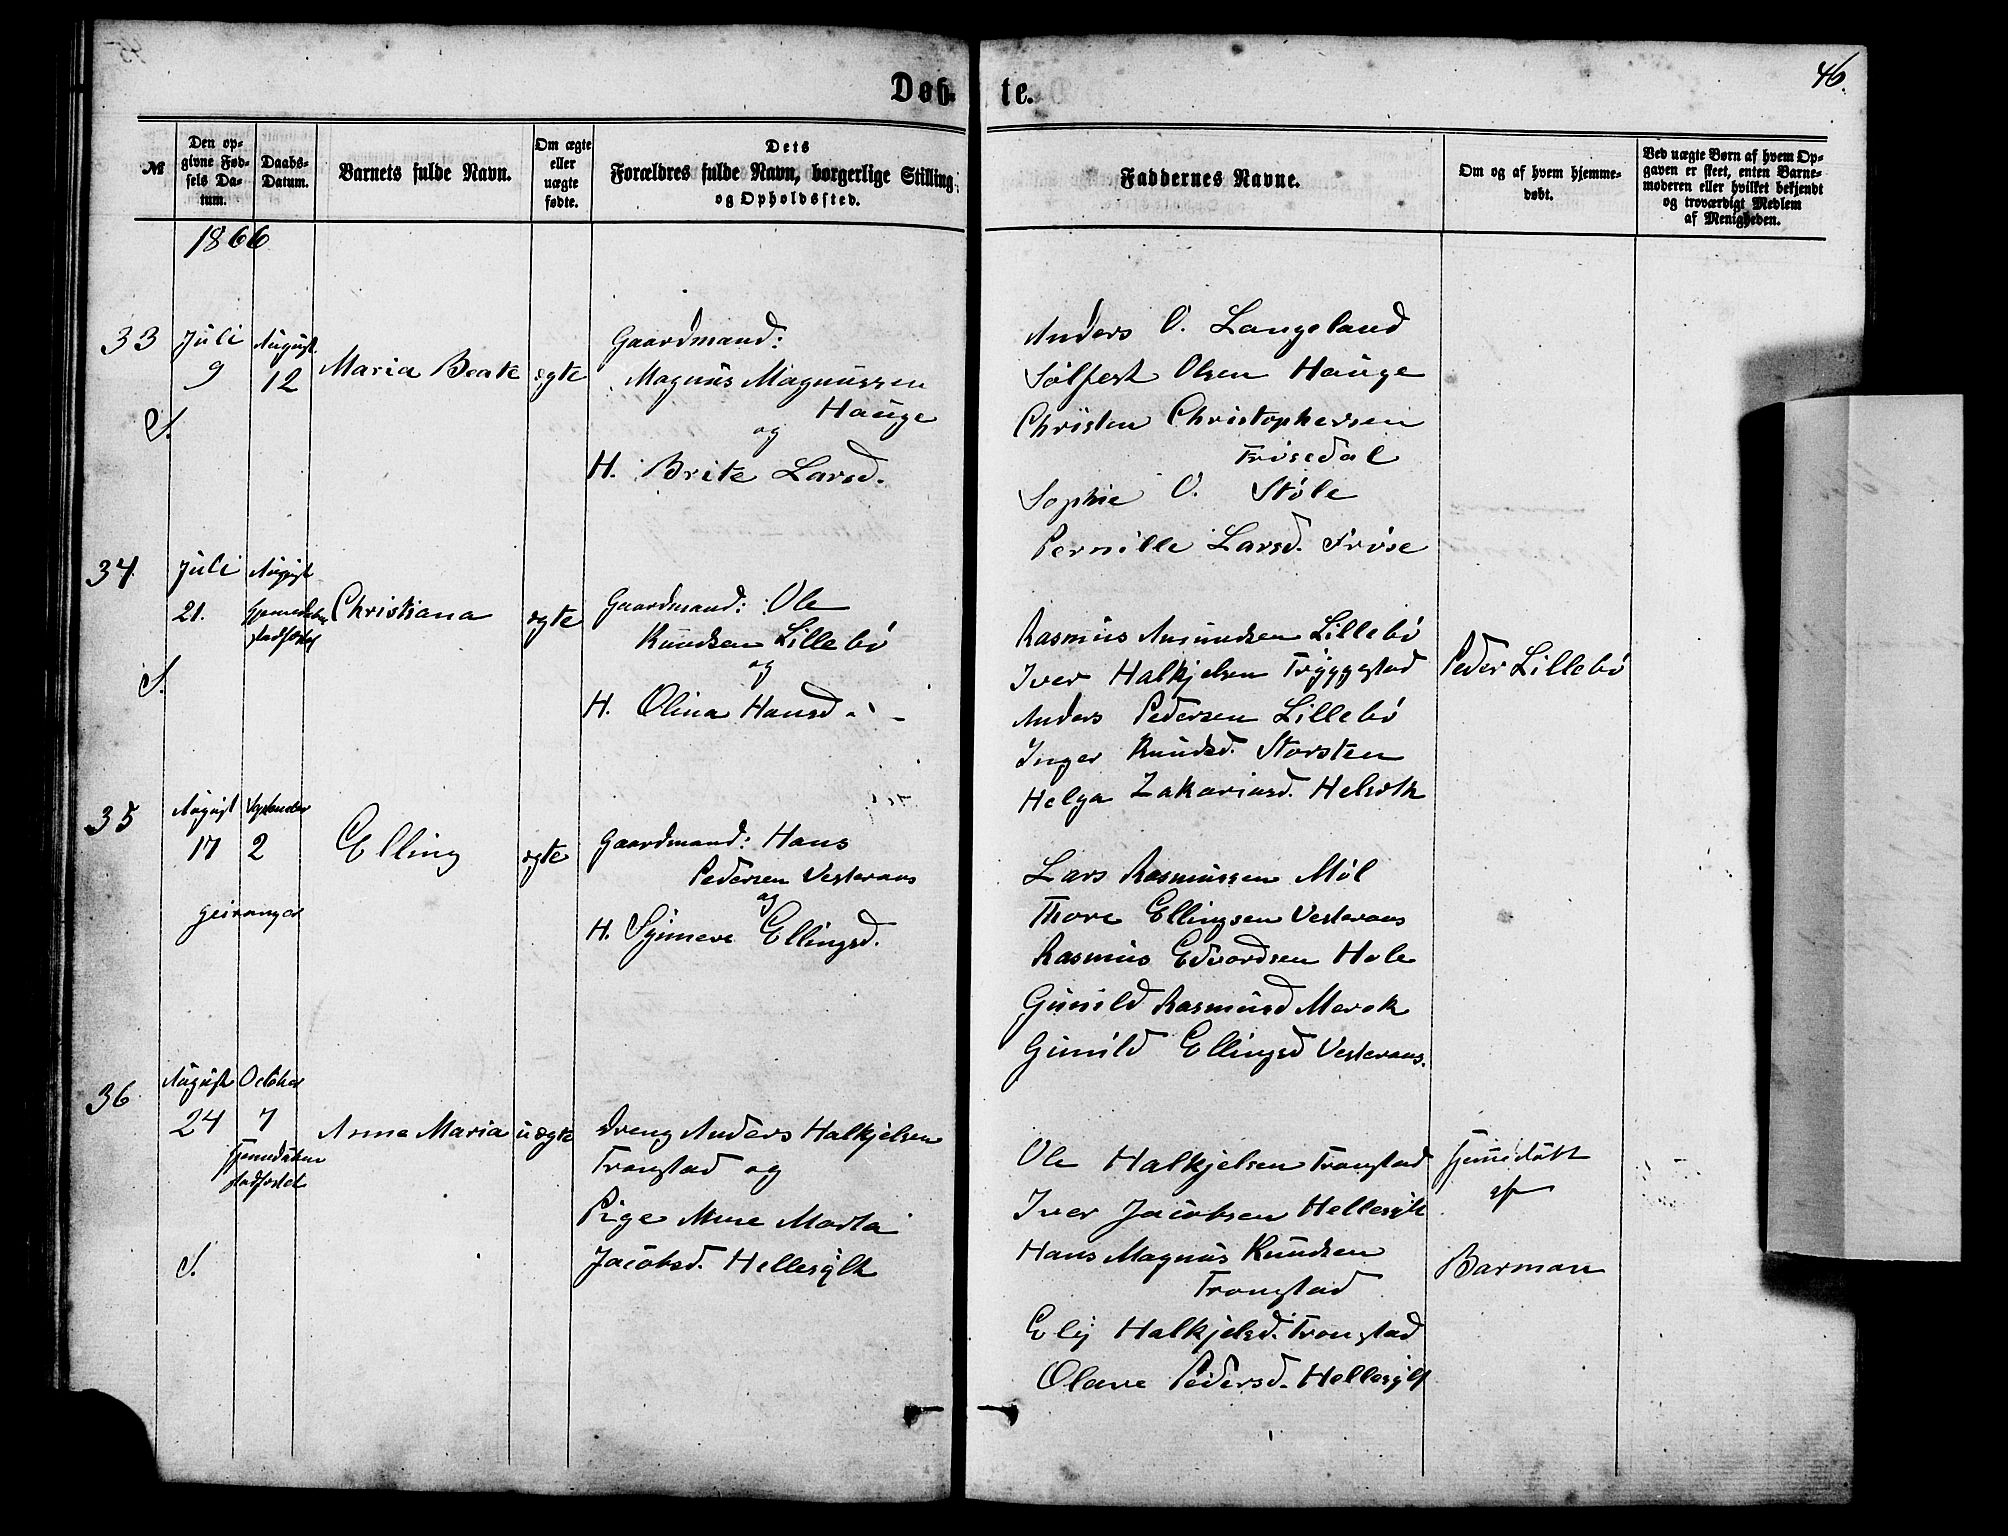 46.
Døb-
te.
№
Den op-
givne Fød-
sels Da-
tum.
Daabs-
Datum.
Barnets fulde Navn.
Om ægte
eller
uægte
fødte.
Dets
Forældres fulde Navn, borgerlige Stilling
og Opholdssted.
Faddernes Navne.
Om og af hvem hjemme-
døbt.
Ved uægte Børn af hvem Op-
gaven er skeet, enten Barne-
moderen eller hvilket bekjendt
og troværdigt Medlem
af Menigheden.
1866
33
Juli
9
August
12
S.
Maria Beate
ægte
Gaardmand:
Magnus Magnussen
Hauge
og
H. Brite Larsd.
Anders O. Langeland
Sølfest Olsen Hauge
Christen Christophersen
Frøisedal
Sophie O. Støle
Pernille Larsd. Frøise
34
Juli
21.
August
stadfæstet
S.
Christiana
ægte
Gaardmand: Ole
Knudsen Lillebø
og
H. Olina Hansd.
Rasmus Amundsen Lillebø
Iver Halkjelsen Tryggestad
Anders Pedersen Lillebø
Inger Knudsd. Storsten
Helga Zakariasd. Helset
Peder Lillebø
35
August
17
September
2
Geiranger
Elling
ægte
Gaardmand: Hans
Pedersen Vesteraas
og
H. Synneve Ellingsd.
Lars Rasmussen Møl
Thore Ellingsen Vesteraas
Rasmus Edvardsen Hole
Gunild Rasmusd Merok
Gunild Ellingsd Vesteraas.
36
August
24
October
7
Hjemmedaaben
stadfæstet
S.
Anne Maria
uægte
Dreng Anders Halkjelsen
Tronstad og
Pige Anne Marta
Jacobsd. Hellesylt
Ole Halkjelsen Tronstad
Iver Jacobsen Hellesylt
Hans Magnus Knudsen
Tronstad
Eli Halkjelsd. Tronstad
Olave Pedersd. Hellesylt
hjemmedøbt
af
Barman